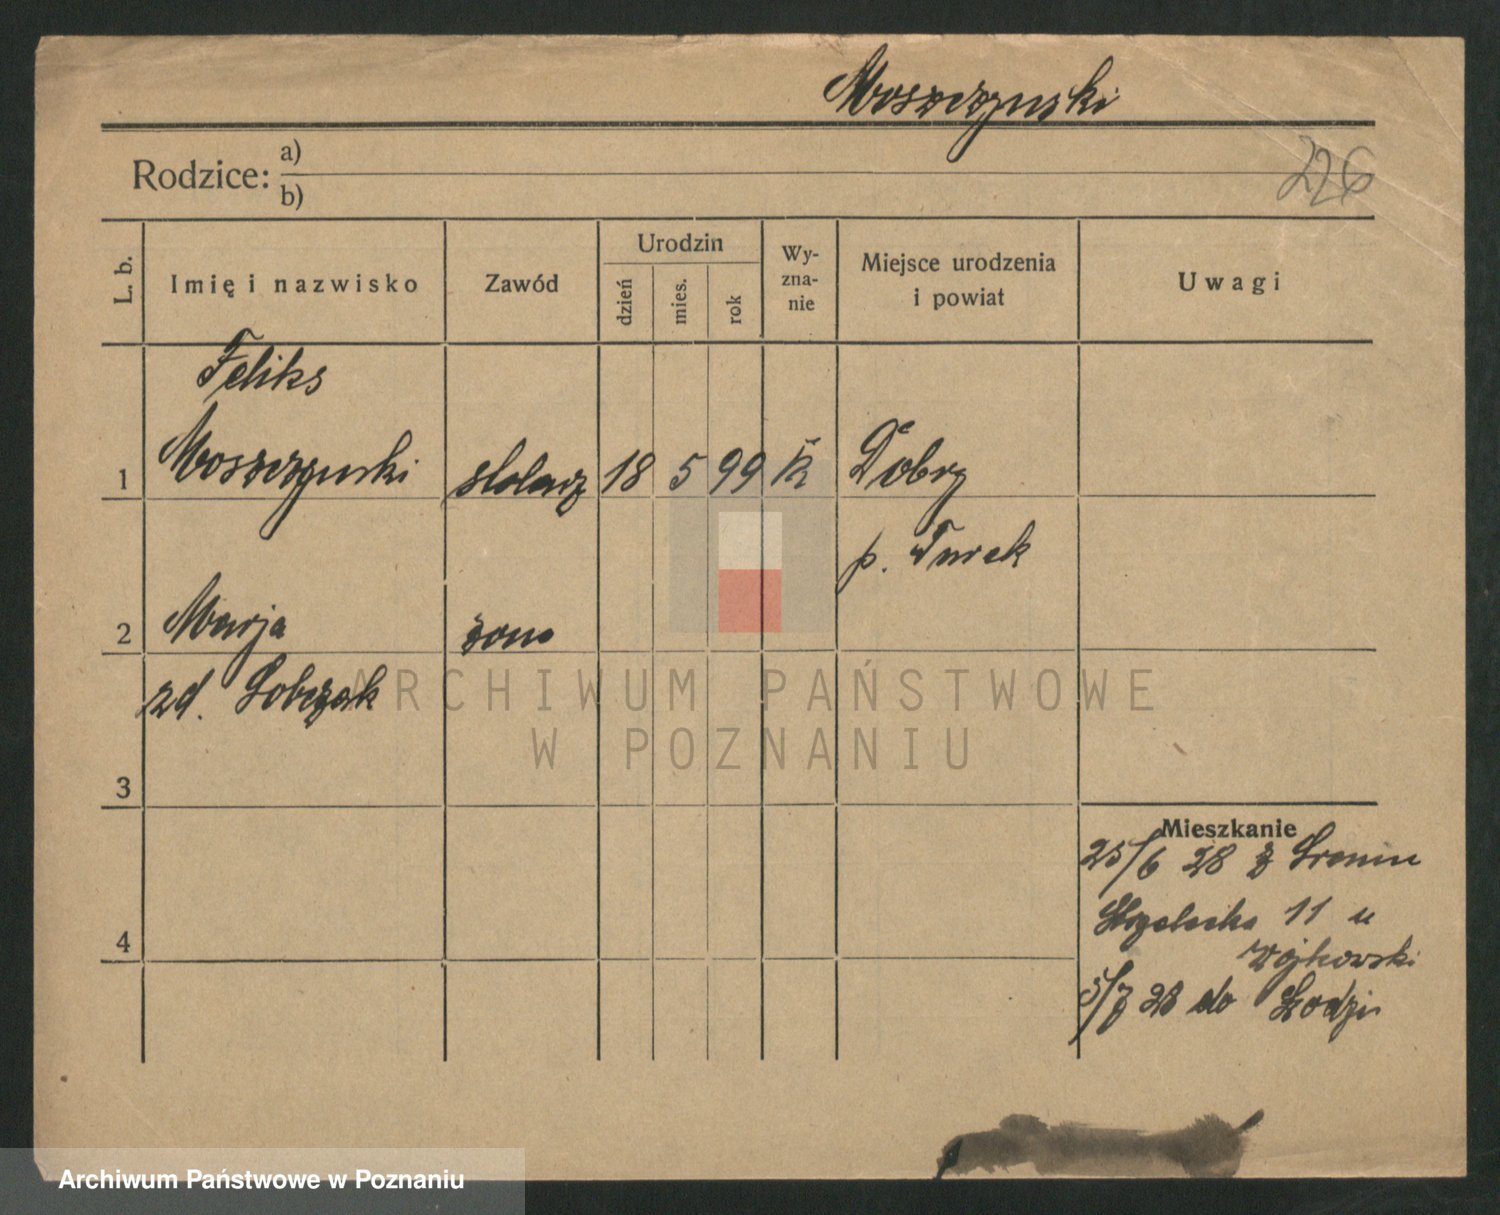 Moszczynski
226
Rodzice: a)
b)
L. b.
Imię i nazwisko
Zawód
Urodzin
dzień
mies.
rok
Wy-
zna-
nie
Miejsce urodzenia
i powiat
Uwagi
Feliks
1 Moszczynski stolarz 18 5 99 k Dobry
p. Turek
2 Marja żona
zd. Sobczak
3
4
Mieszkanie
25/6 28 z
Strzelecka 11 u
Wojkowski
5/7 28 do Łodzi
ARCHIWUM PAŃSTWOWE
W POZNANIU
Archiwum Państwowe w Poznaniu